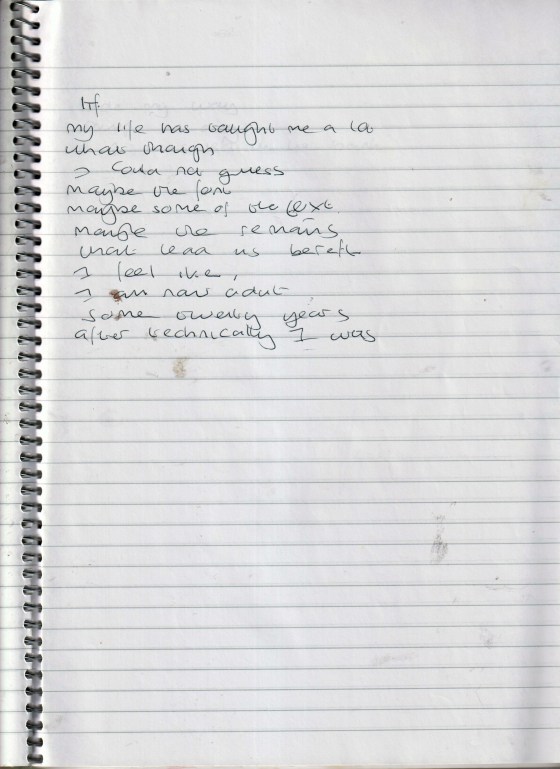 my life has taught me a lot
what though
I could not guess
maybe the font
maybe some of the text
maybe the remains
that lead us bereft
I feel like,
I am now adult,
some twenty years
after technically I was